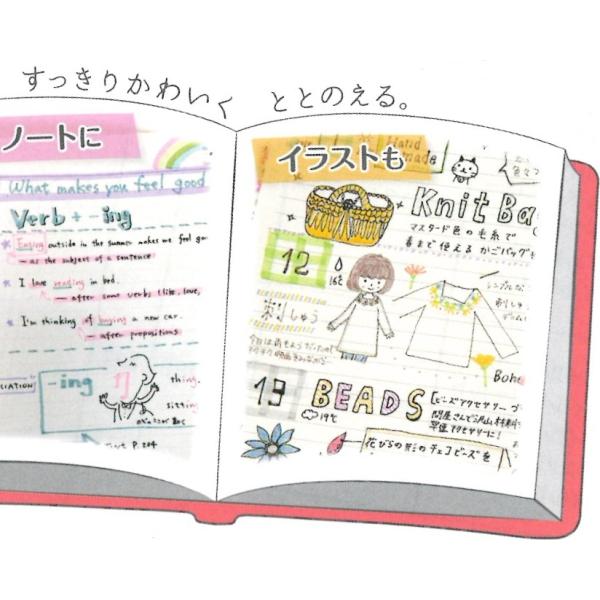 すっきりかわいく ととのえる。
ノートに
What makes you feel good
Verb + -ing
outside in the summer makes me feel go
as the subject of a sentence
I love reading in bed.
after some verbs (like, love,
I'm thinking of buying a new car.
after prepositions
-ing
thing.
sittin
P. 204
イラストも
Hand
made
Knit Ba
マスタード色の毛糸で
春まで使える かごバッグを
12
16℃
刺しゅう
13
BEADS
19℃
[ビーズアクセサリー
問屋さんで沢山材料
早速アクセサリーに!
花びらの形のチェコビーズを
Bohe